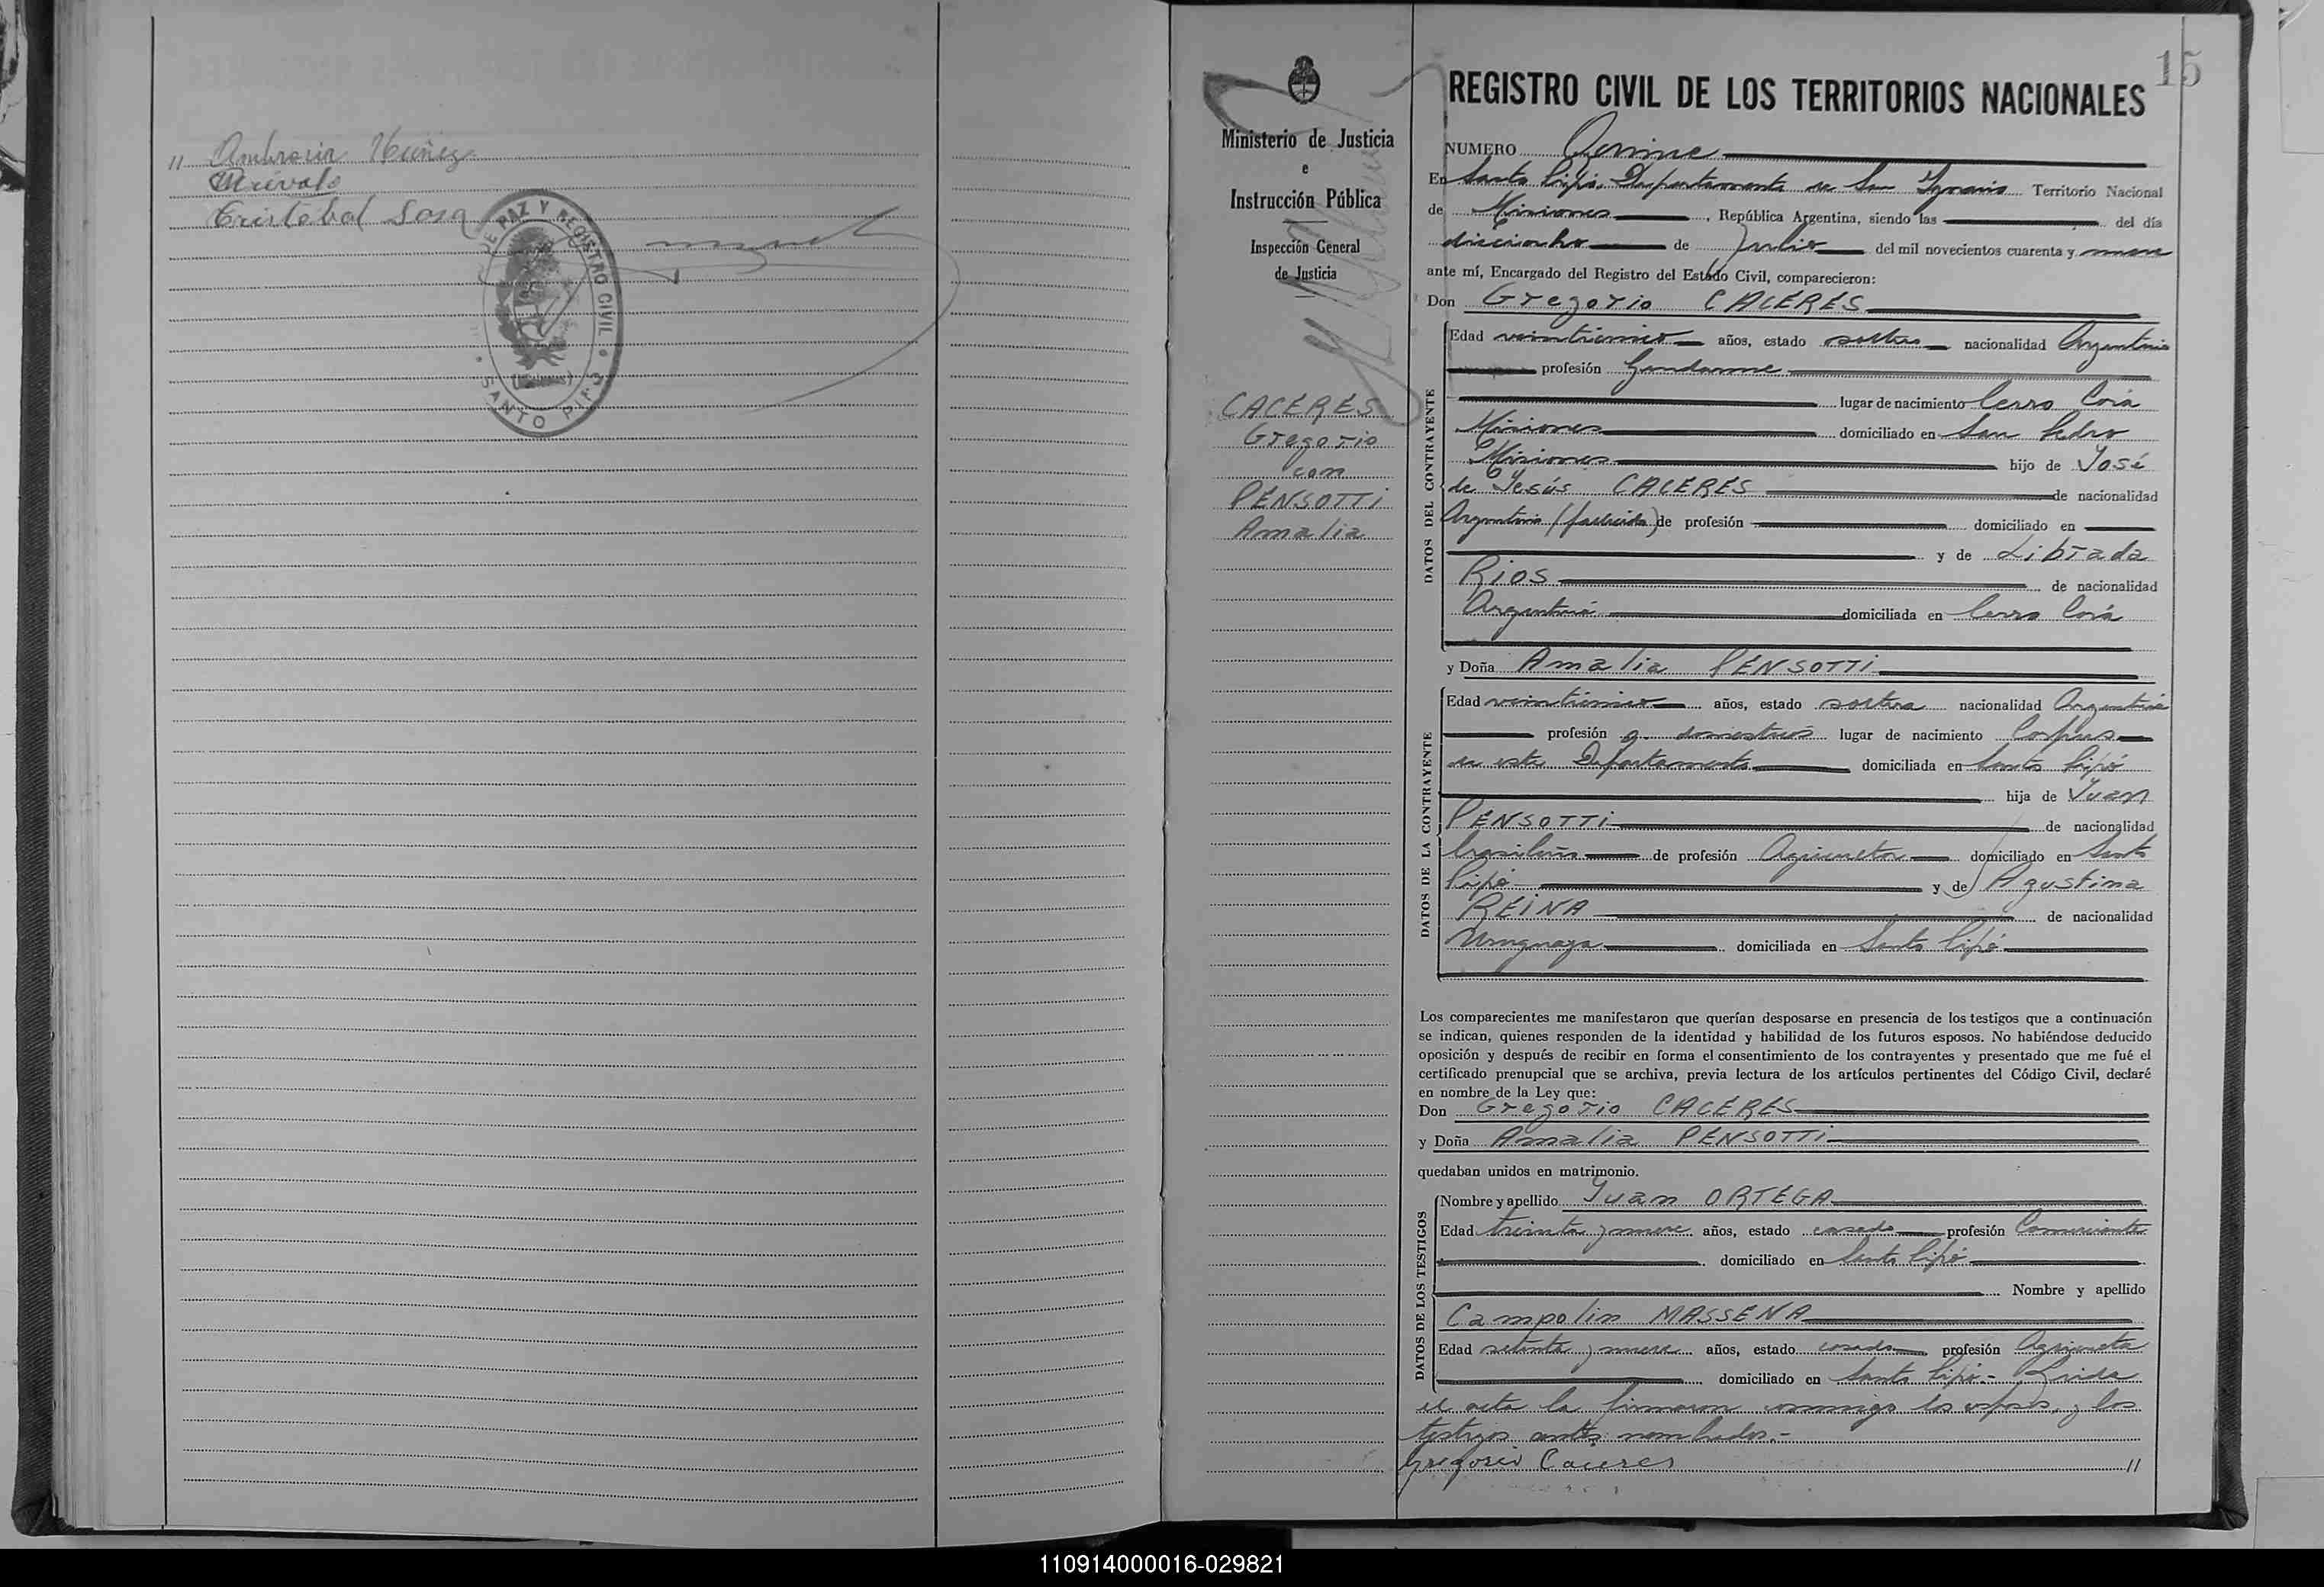 // Ambrosia Núñez
Cristobal Sosa
DE PAZ Y REGISTRO CIVIL
SANTO PIPÓ
(Misiones)
15
Ministerio de Justicia
e
Instrucción Pública
Inspección General
de Justicia
CACERES
Gregorio
con
PENSOTTI
Amalia
REGISTRO CIVIL DE LOS TERRITORIOS NACIONALES
NUMERO Quince
En Santo Pipó, Departamento de San Ygnacio Territorio Nacional
de Misiones, República Argentina, siendo las del día
dieciocho de Julio del mil novecientos cuarenta y nueve
ante mí, Encargado del Registro del Estado Civil, comparecieron:
Don Gregorio CACERES
DATOS DEL CONTRAYENTE
Edad años, estado soltero nacionalidad Argentina
profesión Gendarme
lugar de nacimiento Cerro Corá
Misiones domiciliado en San Pedro
Misiones hijo de José
de Jesús CACERES de nacionalidad
Argentina (fallecido) de profesión domiciliado en
y de Librada
RIOS de nacionalidad
Argentina domiciliada en Cerro Corá
y Doña Amalia PENSOTTI
DATOS DE LA CONTRAYENTE
Edad años, estado soltera nacionalidad Argentina
profesión q. domesticos lugar de nacimiento Corpus
en este Departamento domiciliada en Santo Pipó
hija de Juan
PENSOTTI de nacionalidad
brasileño de profesión Agricultor domiciliado en Santo
Pipó y de Agustina
REINA de nacionalidad
Uruguaya domiciliada en Santo Pipó
Los comparecientes me manifestaron que querían desposarse en presencia de los testigos que a continuación
se indican, quienes responden de la identidad y habilidad de los futuros esposos. No habiéndose deducido
oposición y después de recibir en forma el consentimiento de los contrayentes y presentado que me fué el
certificado prenupcial que se archiva, previa lectura de los artículos pertinentes del Código Civil, declaré
en nombre de la Ley que:
Don Gregorio CACERES
y Doña Amalia PENSOTTI
quedaban unidos en matrimonio.
DATOS DE LOS TESTIGOS
Nombre y apellido Juan ORTEGA
Edad treinta y nueve años, estado casado profesión Comerciante
domiciliado en Santo Pipó
Nombre y apellido
Campolin MASSENA
Edad setenta y nueve años, estado casado profesión Agricultor
domiciliado en Santo Pipó.- Leida
el acta la firmaron conmigo los esposos, y los
testigos antes nombrados.-
Gregorio Caceres //
110914000016-029821